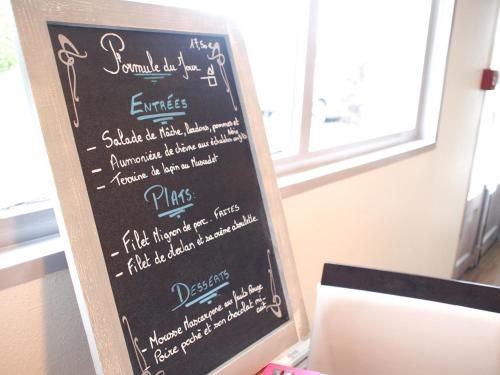 Formule du Jour
17,50€
ENTRÉES
- Salade de Mâche, lardons, pommes et
- Aumonière de chèvre aux échalotes confites
- Terrine de lapin au Muscadet
PLATS:
- Filet Mignon de porc. FRITES
- Filet de merlan et sa crème ciboulette
DESSERTS
- Mousse Mascarpone au fruits Rouge
- Poire poché et son chocolat mi-
cuit